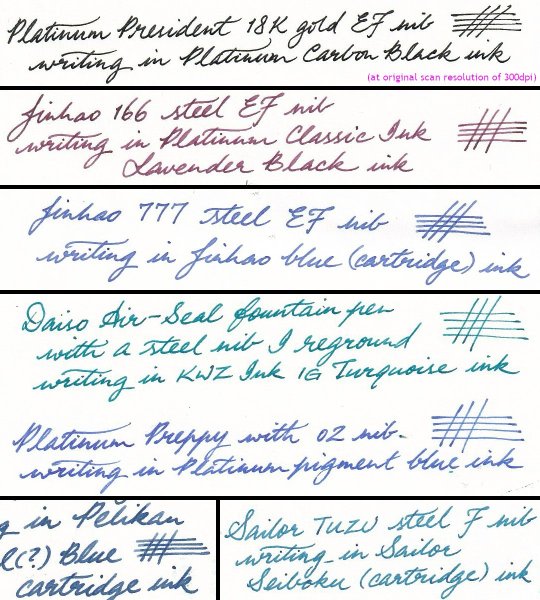 Platinum President 18K gold EF nib
writing in Platinum Carbon Black ink
(at original scan resolution of 300dpi)
Jinhao 166 steel EF nib
writing in Platinum Classic Ink
Lavender Black ink
Jinhao 777 steel EF nib
writing in Jinhao blue (cartridge) ink
Daiso Air-Seal fountain pen
with a steel nib I reground
writing in KWZ Ink IG Turquoise ink
Platinum Preppy with 02 nib.
writing in Platinum pigment blue ink
g in Pelikan
l(?) Blue
cartridge ink
Sailor TUZU steel F nib
writing in Sailor
Seiboku (cartridge) ink